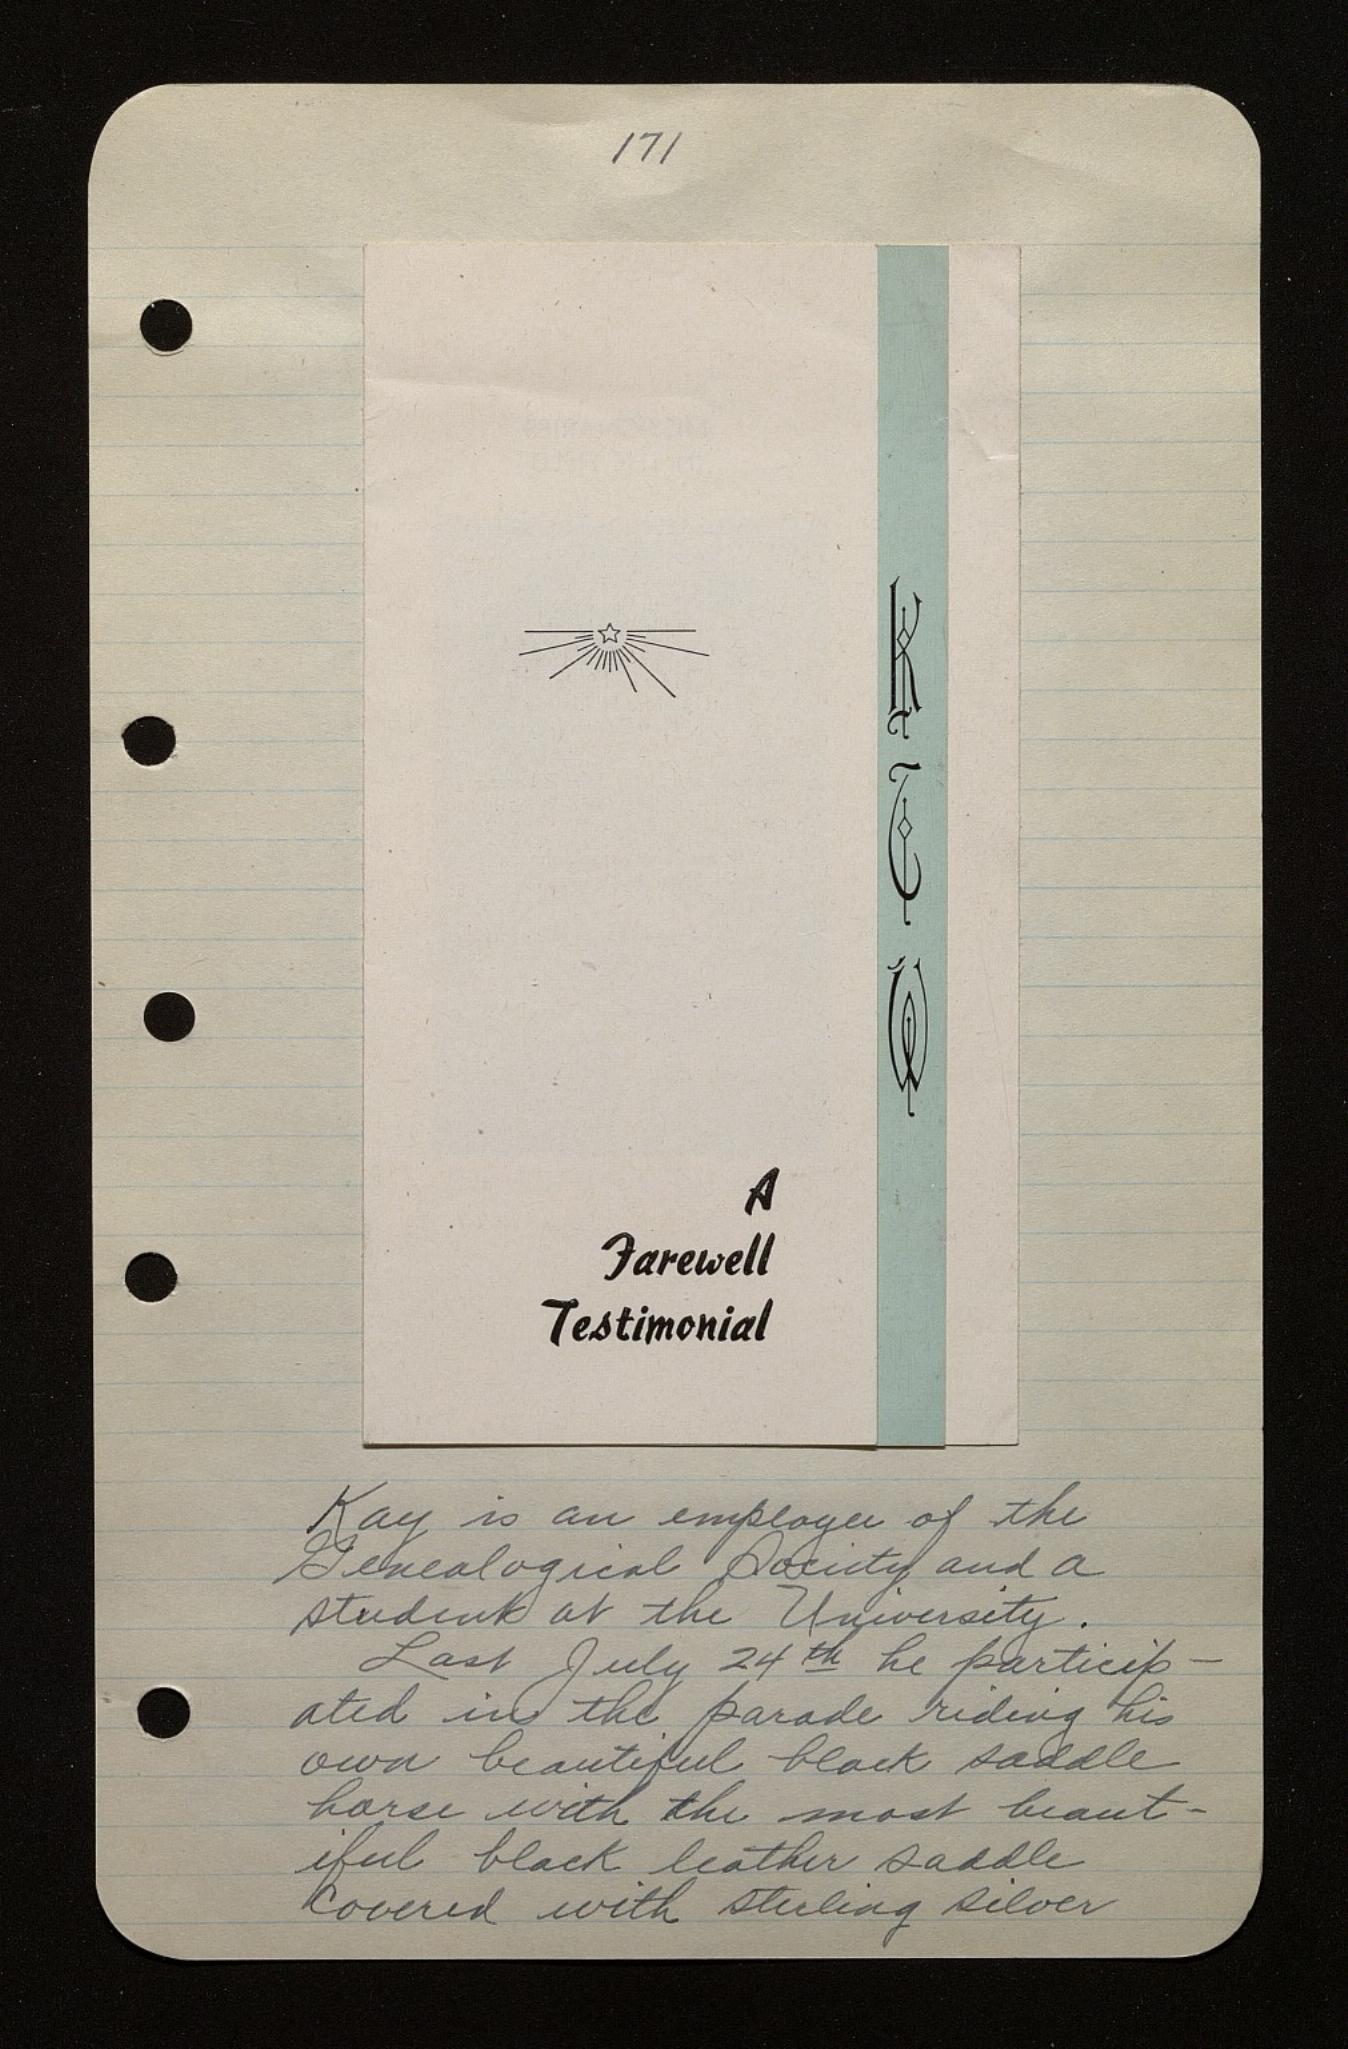 171
K
T
W
A
Farewell
Testimonial
Kay is an employee of the
Genealogical Society and a
student at the University.
Last July 24th he particip-
ated in the parade riding his
own beautiful black saddle
horse with the most beaut-
iful black leather saddle
covered with sterling silver